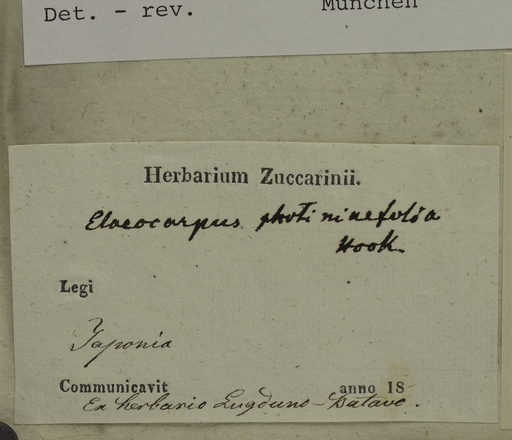 Det. - rev. München
Herbarium Zuccarinii.
Elaeocarpus photiniaefolia
Hook.
Legi
Japonia
Communicavit anno 18
Ex herbario Lugduno-Batavo.